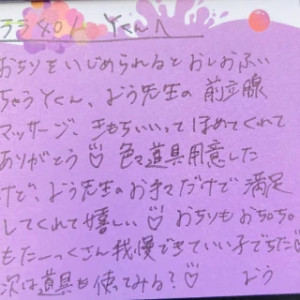 ララ40人 Yくんへ
おちりをいじめられるとおしおふい
ちゃうYくん、よう先生の前立腺
マッサージ、きもちいいってほめてくれて
ありがとう♡ 色々道具用意した
けど、よう先生のおまだけで満足
してくれて嬉しい♡ おちりもおちち
もたーっくさん我慢できていい子でちた♡
次は道具も使ってみる?♡ よう